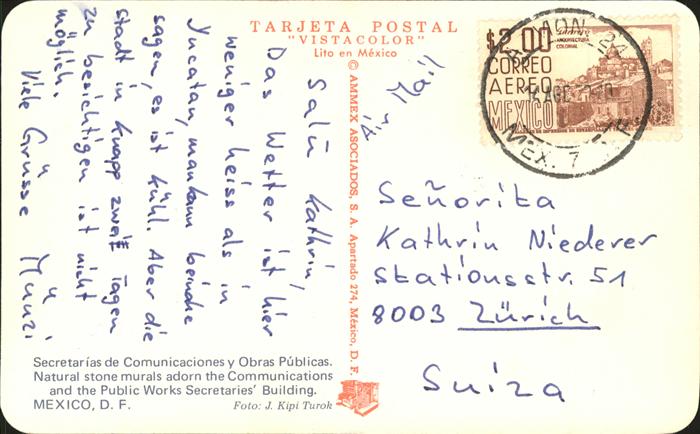 TARJETA POSTAL
"VISTACOLOR"
Lito en México
© AMMEX ASOCIADOS, S. A. Apartado 274, México, D. F.
Air Mail
Salü Kathrin,
Das Wetter ist hier
weniger heiss als in
Yucatan, man kann beinahe
sagen, es ist kühl. Aber die
Stadt in knapp zwei Tagen
zu besichtigen ist nicht
möglich.
Viele Grüsse
$2.00
CORREO
AEREO
MEXICO
ARQUITECTURA
COLONIAL
MEX. 7
Señorita
Kathrin Niederer
Stationsstr. 51
8003 Zürich
Suiza
Secretarías de Comunicaciones y Obras Públicas.
Natural stone murals adorn the Communications
and the Public Works Secretaries' Building.
MEXICO, D. F.
Foto: J. Kipi Turok